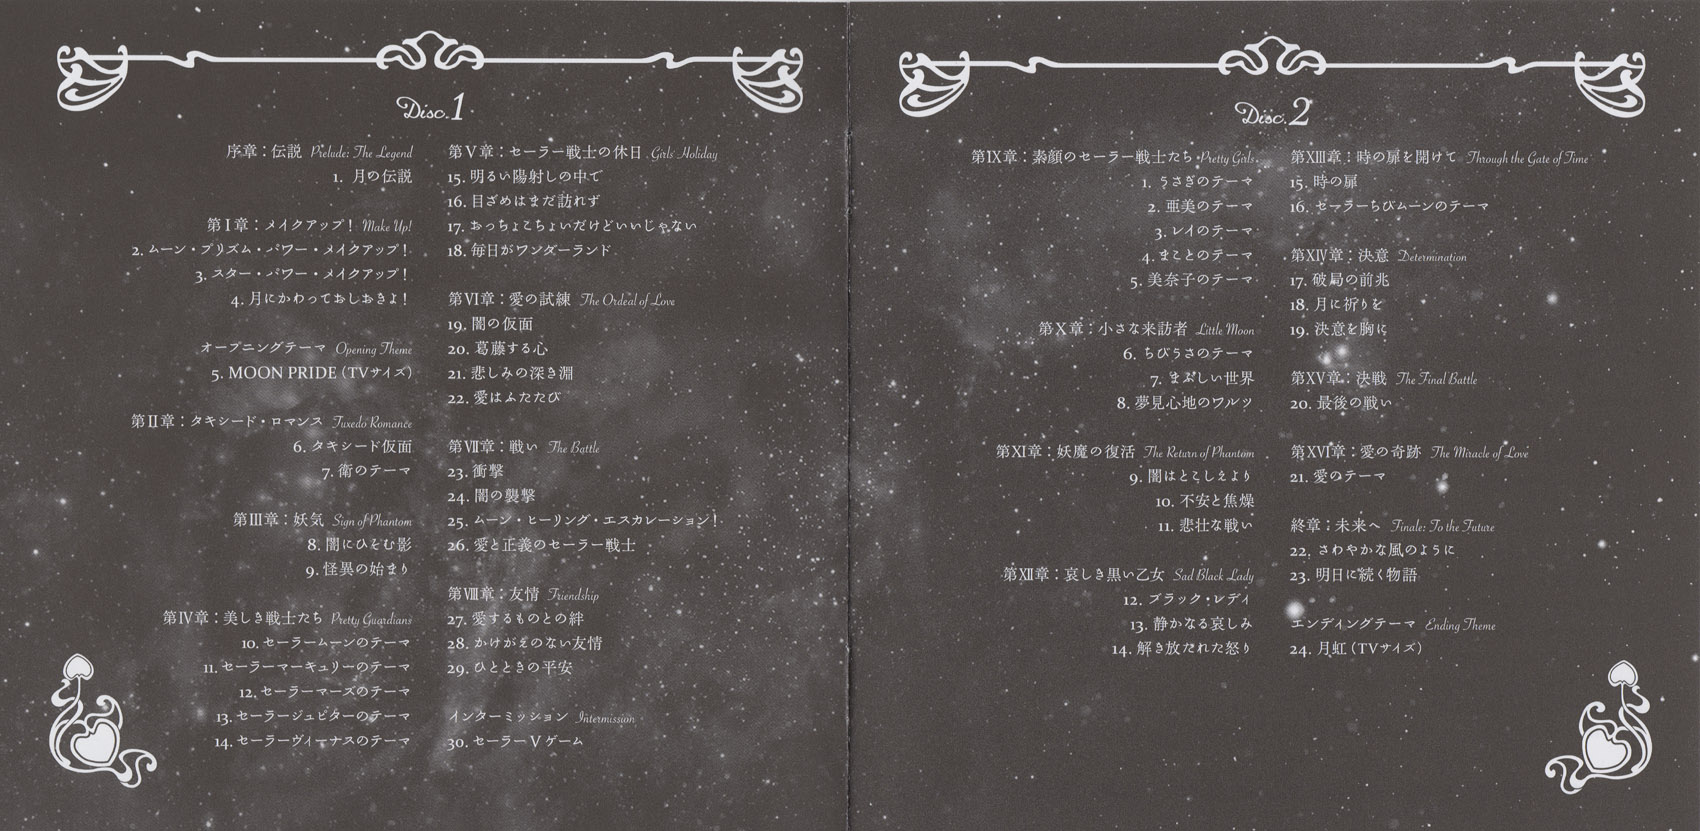 Disc.1
序章：伝説 Prelude: The Legend
1. 月の伝説
第Ⅰ章：メイクアップ！ Make Up!
2. ムーン・プリズム・パワー・メイクアップ！
3. スター・パワー・メイクアップ！
4. 月にかわっておしおきよ！
オープニングテーマ Opening Theme
5. MOON PRIDE（TVサイズ）
第Ⅱ章：タキシード・ロマンス Tuxedo Romance
6. タキシード仮面
7. 衛のテーマ
第Ⅲ章：妖気 Sign of Phantom
8. 闇にひそむ影
9. 怪異の始まり
第Ⅳ章：美しき戦士たち Pretty Guardians
10. セーラームーンのテーマ
11. セーラーマーキュリーのテーマ
12. セーラーマーズのテーマ
13. セーラージュピターのテーマ
14. セーラーヴィーナスのテーマ
第Ⅴ章：セーラー戦士の休日 Girls' Holiday
15. 明るい陽射しの中で
16. 目ざめはまだ訪れず
17. おっちょこちょいだけどいいじゃない
18. 毎日がワンダーランド
第Ⅵ章：愛の試練 The Ordeal of Love
19. 闇の仮面
20. 葛藤する心
21. 悲しみの深き淵
22. 愛はふたたび
第Ⅶ章：戦い The Battle
23. 衝撃
24. 闇の襲撃
25. ムーン・ヒーリング・エスカレーション！
26. 愛と正義のセーラー戦士
第Ⅷ章：友情 Friendship
27. 愛するものとの絆
28. かけがえのない友情
29. ひとときの平安
インターミッション Intermission
30. セーラーVゲーム
Disc.2
第Ⅸ章：素顔のセーラー戦士たち Pretty Girls
1. うさぎのテーマ
2. 亜美のテーマ
3. レイのテーマ
4. まことのテーマ
5. 美奈子のテーマ
第Ⅹ章：小さな来訪者 Little Moon
6. ちびうさのテーマ
7. まぶしい世界
8. 夢見心地のワルツ
第Ⅺ章：妖魔の復活 The Return of Phantom
9. 闇はとこしえより
10. 不安と焦燥
11. 悲壮な戦い
第Ⅻ章：哀しき黒い乙女 Sad Black Lady
12. ブラック・レディ
13. 静かなる哀しみ
14. 解き放たれた怒り
第XIII章：時の扉を開けて Through the Gate of Time
15. 時の扉
16. セーラーちびムーンのテーマ
第XIV章：決意 Determination
17. 破局の前兆
18. 月に祈りを
19. 決意を胸に
第XV章：決戦 The Final Battle
20. 最後の戦い
第XVI章：愛の奇跡 The Miracle of Love
21. 愛のテーマ
終章：未来へ Finale: To the Future
22. さわやかな風のように
23. 明日に続く物語
エンディングテーマ Ending Theme
24. 月虹（TVサイズ）